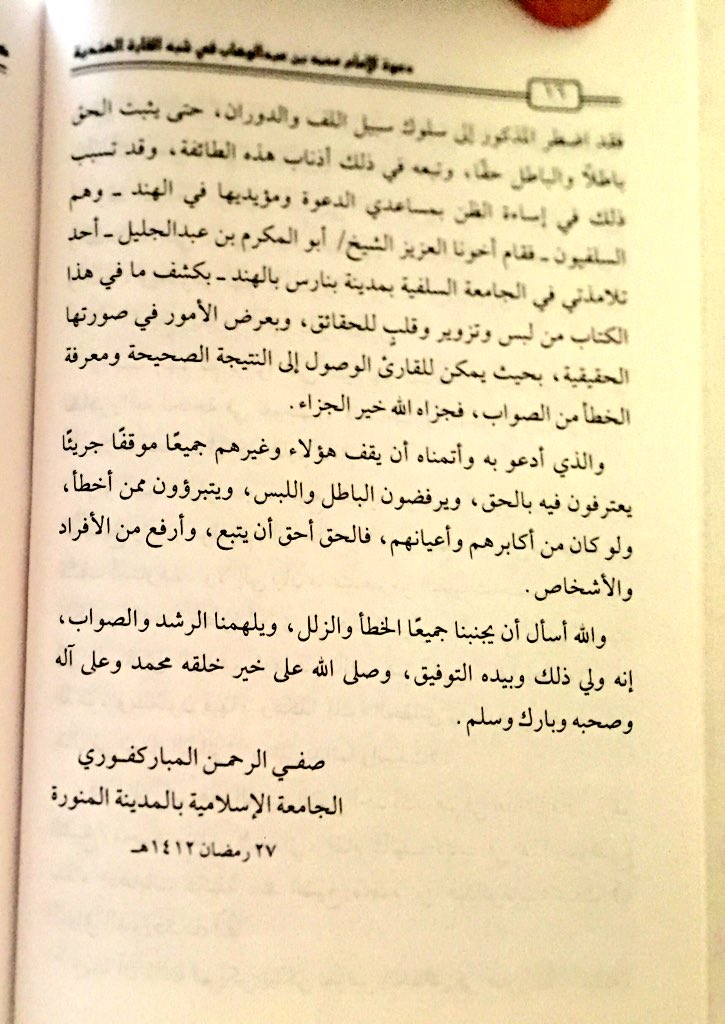 دعوة الإمام محمد بن عبدالوهاب في شبه القارة الهندية
١٦
فقد اضطر المذكور إلى سلوك سبيل اللف والدوران، حتى يثبت الحق
باطلاً والباطل حقًا، وتبعه في ذلك أذناب هذه الطائفة، وقد تسبب
ذلك في إساءة الظن بمساعدي الدعوة ومؤيديها في الهند ـ وهم
السلفيون ـ فقام أخونا العزيز الشيخ/ أبو المكرم بن عبدالجليل ـ أحد
تلامذتي في الجامعة السلفية بمدينة بنارس بالهند ـ بكشف ما في هذا
الكتاب من لبس وتزوير وقلبٍ للحقائق، وبعرض الأمور في صورتها
الحقيقية، بحيث يمكن للقارئ الوصول إلى النتيجة الصحيحة ومعرفة
الخطأ من الصواب، فجزاه الله خير الجزاء.
والذي أدعو به وأتمناه أن يقف هؤلاء وغيرهم جميعًا موقفًا جريئًا
يعترفون فيه بالحق، ويرفضون الباطل واللبس، ويتبرؤون ممن أخطأ،
ولو كان من أكابرهم وأعيانهم، فالحق أحق أن يتبع، وأرفع من الأفراد
والأشخاص.
والله أسأل أن يجنبنا جميعًا الخطأ والزلل، ويلهمنا الرشد والصواب،
إنه ولي ذلك وبيده التوفيق، وصلى الله على خير خلقه محمد وعلى آله
وصحبه وبارك وسلم.
صفي الرحمن المباركفوري
الجامعة الإسلامية بالمدينة المنورة
٢٧ رمضان ١٤١٢هـ